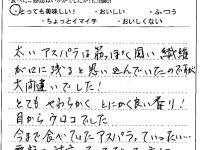 ・とっても美味しい！ ・おいしい ・ふつう
・ちょっとイマイチ ・おいしくない
太いアスパラは筋っぽく固い繊維
が口に残ると思い込んでいたのですが
大間違いでした！
とてもやわらかく しかも良い香り！
目からウロコでした
今まで食べていたアスパラって いったい…